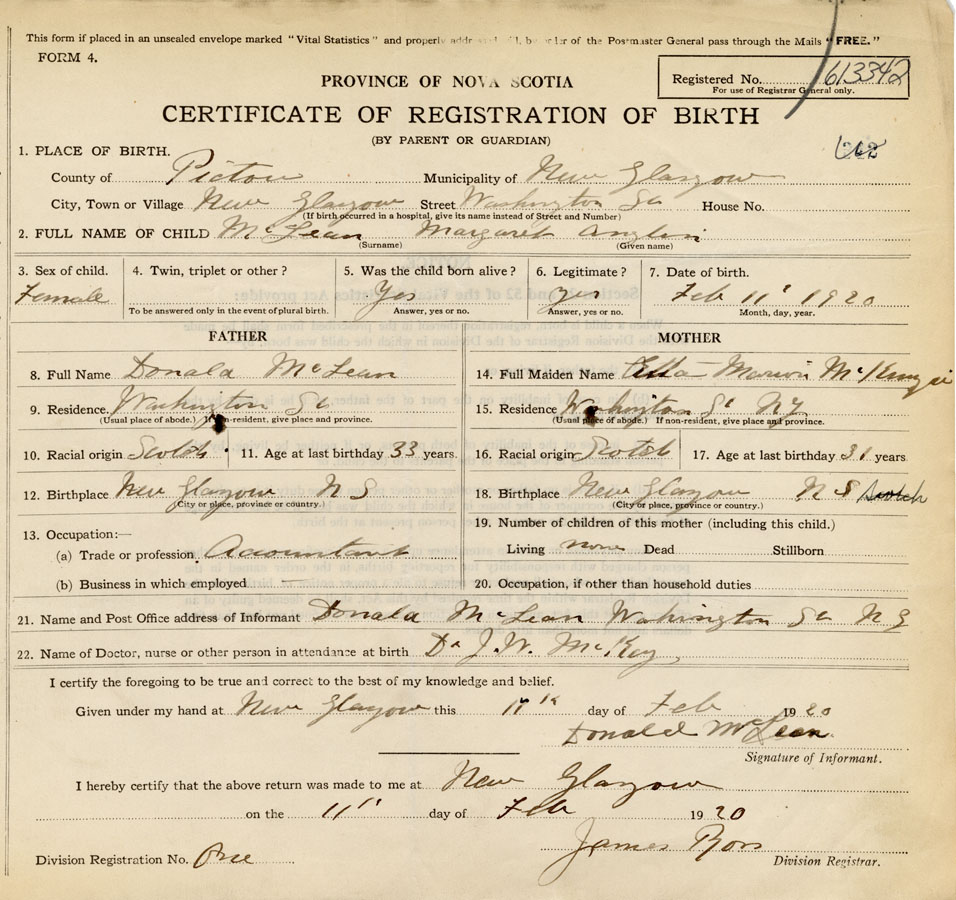 This form if placed in an unsealed envelope marked "Vital Statistics" and properly by order of the Postmaster General pass through the Mails "FREE."
FORM 4.
PROVINCE OF NOVA SCOTIA
Registered No. 613342
For use of Registrar General only.
CERTIFICATE OF REGISTRATION OF BIRTH
(BY PARENT OR GUARDIAN)
1. PLACE OF BIRTH.
County of Pictou Municipality of New Glasgow
City, Town or Village New Glasgow Street Washington St House No.
(If birth occurred in a hospital, give its name instead of Street and Number)
2. FULL NAME OF CHILD McLean Margaret Anglin
(Surname) (Given name)
3. Sex of child. 4. Twin, triplet or other? 5. Was the child born alive? 6. Legitimate? 7. Date of birth.
Female Yes Yes Feb 11" 1920
To be answered only in the event of plural birth. Answer, yes or no. Answer, yes or no. Month, day, year.
FATHER MOTHER
8. Full Name Donald McLean 14. Full Maiden Name Etta Marion McKenzie
9. Residence. Washington St 15. Residence Washington St N G
(Usual place of abode.) If non-resident, give place and province. (Usual place of abode.) If non-resident, give place and province.
10. Racial origin Scotch 11. Age at last birthday 33 years. 16. Racial origin Scotch 17. Age at last birthday 31 years.
12. Birthplace New Glasgow N S 18. Birthplace New Glasgow N S Scotch
(City or place, province or country.) (City or place, province or country.)
13. Occupation:— 19. Number of children of this mother (including this child.)
(a) Trade or profession Acountant Living none Dead Stillborn
(b) Business in which employed — 20. Occupation, if other than household duties
21. Name and Post Office address of Informant Donald McLean Wahington St N G
22. Name of Doctor, nurse or other person in attendance at birth Dr J. W. McKay
I certify the foregoing to be true and correct to the best of my knowledge and belief.
Given under my hand at New Glasgow this 11th day of Feb 1920
Donald McLean
Signature of Informant.
I hereby certify that the above return was made to me at New Glasgow
on the 11" day of Feb 1920
James Ross
Division Registration No. One Division Registrar.